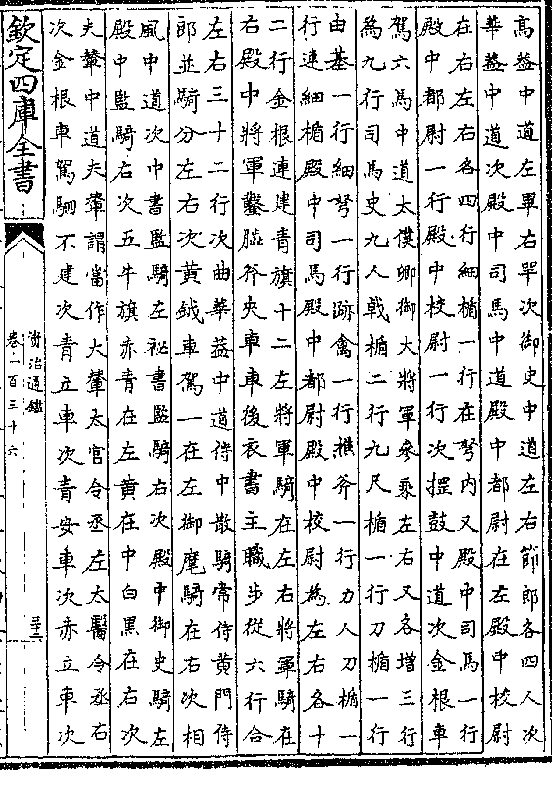 高蓋中道左罼右罕次御史中道左右節郎各四人次
華蓋中道次殿中司馬中道殿中都尉在左殿中校尉
在右左右各四行細楯一行在弩内又殿中司馬一行
殿中都尉一行殿中校尉一行次摼鼓中道次金根車
駕六馬中道太僕卿御大將軍參乘左右又各增三行
為九行司馬史九人戟楯二行九尺楯一行刀楯一行
由基一行細弩一行跡禽一行椎斧一行力人刀楯一
行連細楯殿中司馬殿中都尉殿中校尉為左右各十
二行金根連建青旗十二左將軍騎在左右將軍騎在
右殿中將軍鑿腦斧夾車車後衣書主職步從六行合
左右三十二行次曲華蓋中道侍中散騎常侍黄門侍
郎並騎分左右次黄鉞車駕一在左御麾騎在右次相
風中道次中書監騎左祕書監騎右次殿中御史騎左
殿中監騎右次五牛旗赤青在左黄在中白黑在右次
夫輦中道夫輦謂當作大輦太官令丞左太醫令丞右
次金根車駕駟不建次青立車次青安車次赤立車次
欽定四庫全書
資治通鑑
卷一百三十六